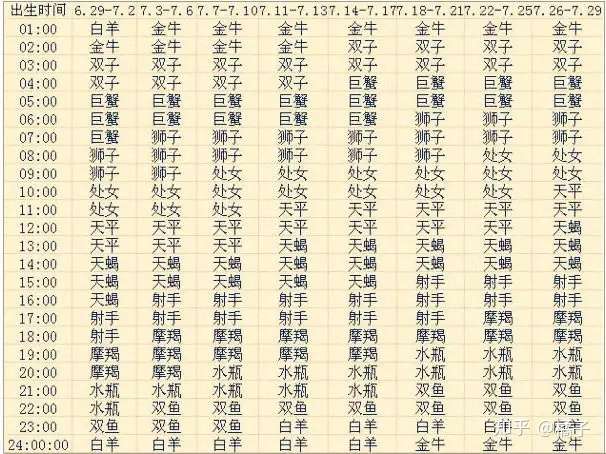 出生时间 6.29-7.2 7.3-7.6 7.7-7.10 7.11-7.13 7.14-7.17 7.18-7.21 7.22-7.25 7.26-7.29
01:00 白羊 金牛 金牛 金牛 金牛 金牛 金牛 金牛
02:00 金牛 金牛 金牛 金牛 双子 双子 双子 双子
03:00 双子 双子 双子 双子 双子 双子 双子 双子
04:00 双子 双子 双子 双子 巨蟹 巨蟹 巨蟹 巨蟹
05:00 巨蟹 巨蟹 巨蟹 巨蟹 巨蟹 巨蟹 巨蟹 巨蟹
06:00 巨蟹 巨蟹 巨蟹 巨蟹 巨蟹 狮子 狮子 狮子
07:00 巨蟹 狮子 狮子 狮子 狮子 狮子 狮子 狮子
08:00 狮子 狮子 狮子 狮子 狮子 狮子 处女 处女
09:00 狮子 狮子 处女 处女 处女 处女 处女 处女
10:00 处女 处女 处女 处女 处女 处女 处女 天平
11:00 处女 处女 处女 天平 天平 天平 天平 天平
12:00 天平 天平 天平 天平 天平 天平 天平 天蝎
13:00 天平 天平 天平 天蝎 天蝎 天蝎 天蝎 天蝎
14:00 天蝎 天蝎 天蝎 天蝎 天蝎 天蝎 天蝎 天蝎
15:00 天蝎 天蝎 天蝎 天蝎 天蝎 射手 射手 射手
16:00 天蝎 射手 射手 射手 射手 射手 射手 射手
17:00 射手 射手 射手 射手 射手 射手 摩羯 摩羯
18:00 射手 摩羯 摩羯 摩羯 摩羯 摩羯 摩羯 摩羯
19:00 摩羯 摩羯 摩羯 摩羯 摩羯 水瓶 水瓶 水瓶
20:00 摩羯 摩羯 水瓶 水瓶 水瓶 水瓶 水瓶 水瓶
21:00 水瓶 水瓶 水瓶 水瓶 水瓶 双鱼 双鱼 双鱼
22:00 水瓶 双鱼 双鱼 双鱼 双鱼 双鱼 双鱼 双鱼
23:00 双鱼 双鱼 双鱼 白羊 白羊 白羊 白羊 白羊
24:00:00 白羊 白羊 白羊 白羊 白羊 金牛 金牛 金牛
知乎